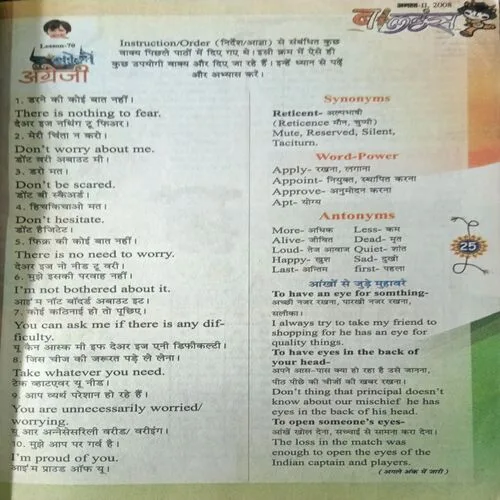 अगस्त-11, 2008
Lesson-70
अंग्रेजी
Instruction/Order (निर्देश/आज्ञा) से संबंधित कुछ
वाक्य पिछले पाठों में दिए गए थे। इसी क्रम में ऐसे ही
कुछ उपयोगी वाक्य और दिए जा रहे हैं। इन्हें ध्यान से पढ़ें
और अभ्यास करें।
1. डरने की कोई बात नहीं।
There is nothing to fear.
देअर इज नथिंग टू फिअर।
2. मेरी चिंता न करो।
Don't worry about me.
डोंट वरी अबाउट मी।
3. डरो मत।
Don't be scared.
डोंट बी स्कैअर्ड।
4. हिचकिचाओ मत।
Don't hesitate.
डोंट हैजिटेट।
5. फिक्र की कोई बात नहीं।
There is no need to worry.
देअर इज नो नीड टू वरी।
6. मुझे इसकी परवाह नहीं।
I'm not bothered about it.
आइ'म नॉट बॉदर्ड अबाउट इट।
7. कोई कठिनाई हो तो पूछिए।
You can ask me if there is any dif-
ficulty.
यू कैन आस्क मी इफ देअर इज एनी डिफीकल्टी।
8. जिस चीज की जरूरत पड़े ले लेना।
Take whatever you need.
टेक व्हाटएवर यू नीड।
9. आप व्यर्थ परेशान हो रहे हैं।
You are unnecessarily worried/
worrying.
यू आर अन्नेसेसरिली वरीड/ वरीइंग।
10. मुझे आप पर गर्व है।
I'm proud of you.
आइ'म प्राउड ऑफ यू।
Synonyms
Reticent- अल्पभाषी
(Reticence मौन, चुप्पी)
Mute, Reserved, Silent,
Taciturn.
Word-Power
Apply- रखना, लगाना
Appoint- नियुक्त, स्थापित करना
Approve- अनुमोदन करना
Apt- योग्य
Antonyms
More- अधिक Less- कम
Alive- जीवित Dead- मृत
Loud- तेज आवाज Quiet- शांत
Happy- खुश Sad- दुखी
Last- अन्तिम first- पहला
25
आंखों से जुड़े मुहावरे
To have an eye for somthing-
अच्छी नजर रखना, पारखी नजर रखना,
सलीका।
I always try to take my friend to
shopping for he has an eye for
quality things.
To have eyes in the back of
your head-
अपने आस-पास क्या हो रहा है उसे जानना,
पीठ पीछे की चीजों की खबर रखना।
Don't thing that principal doesn't
know about our mischief he has
eyes in the back of his head.
To open someone's eyes-
आंखें खोल देना, सच्चाई से सामना करा देना।
The loss in the match was
enough to open the eyes of the
Indian captain and players.
( अगले अंक में जारी )